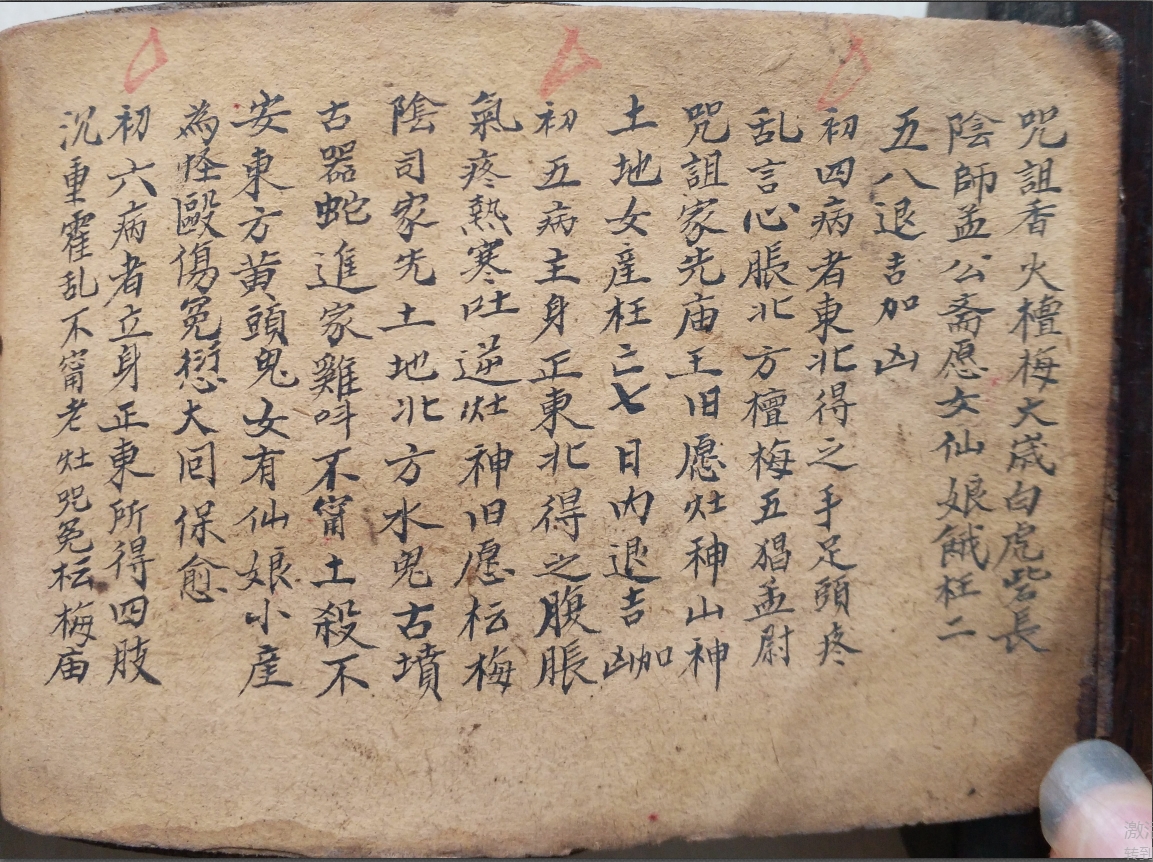 咒詛香火檀梅大歳白虎喾長
陰師孟公斋愿女仙娘餓枉二
五八退吉加凶
初四病者東北得之手足頭疼
乱言心脹北方檀梅五猖孟尉
咒詛家先庙王旧愿灶神山神
土地女産枉亡七日内退吉加凶
初五病主身正東北得之腹脹
氣疼熱寒吐逆灶神旧愿枟梅
陰司家先土地北方水鬼古墳
古器蛇進家雞呌不甯土殺不
安東方黄頭鬼女有仙娘小産
為怪毆傷冤愆大囘保愈
初六病者立身正東所得四肢
沉重霍乱不甯老灶咒冤枟梅庙
激活
转到